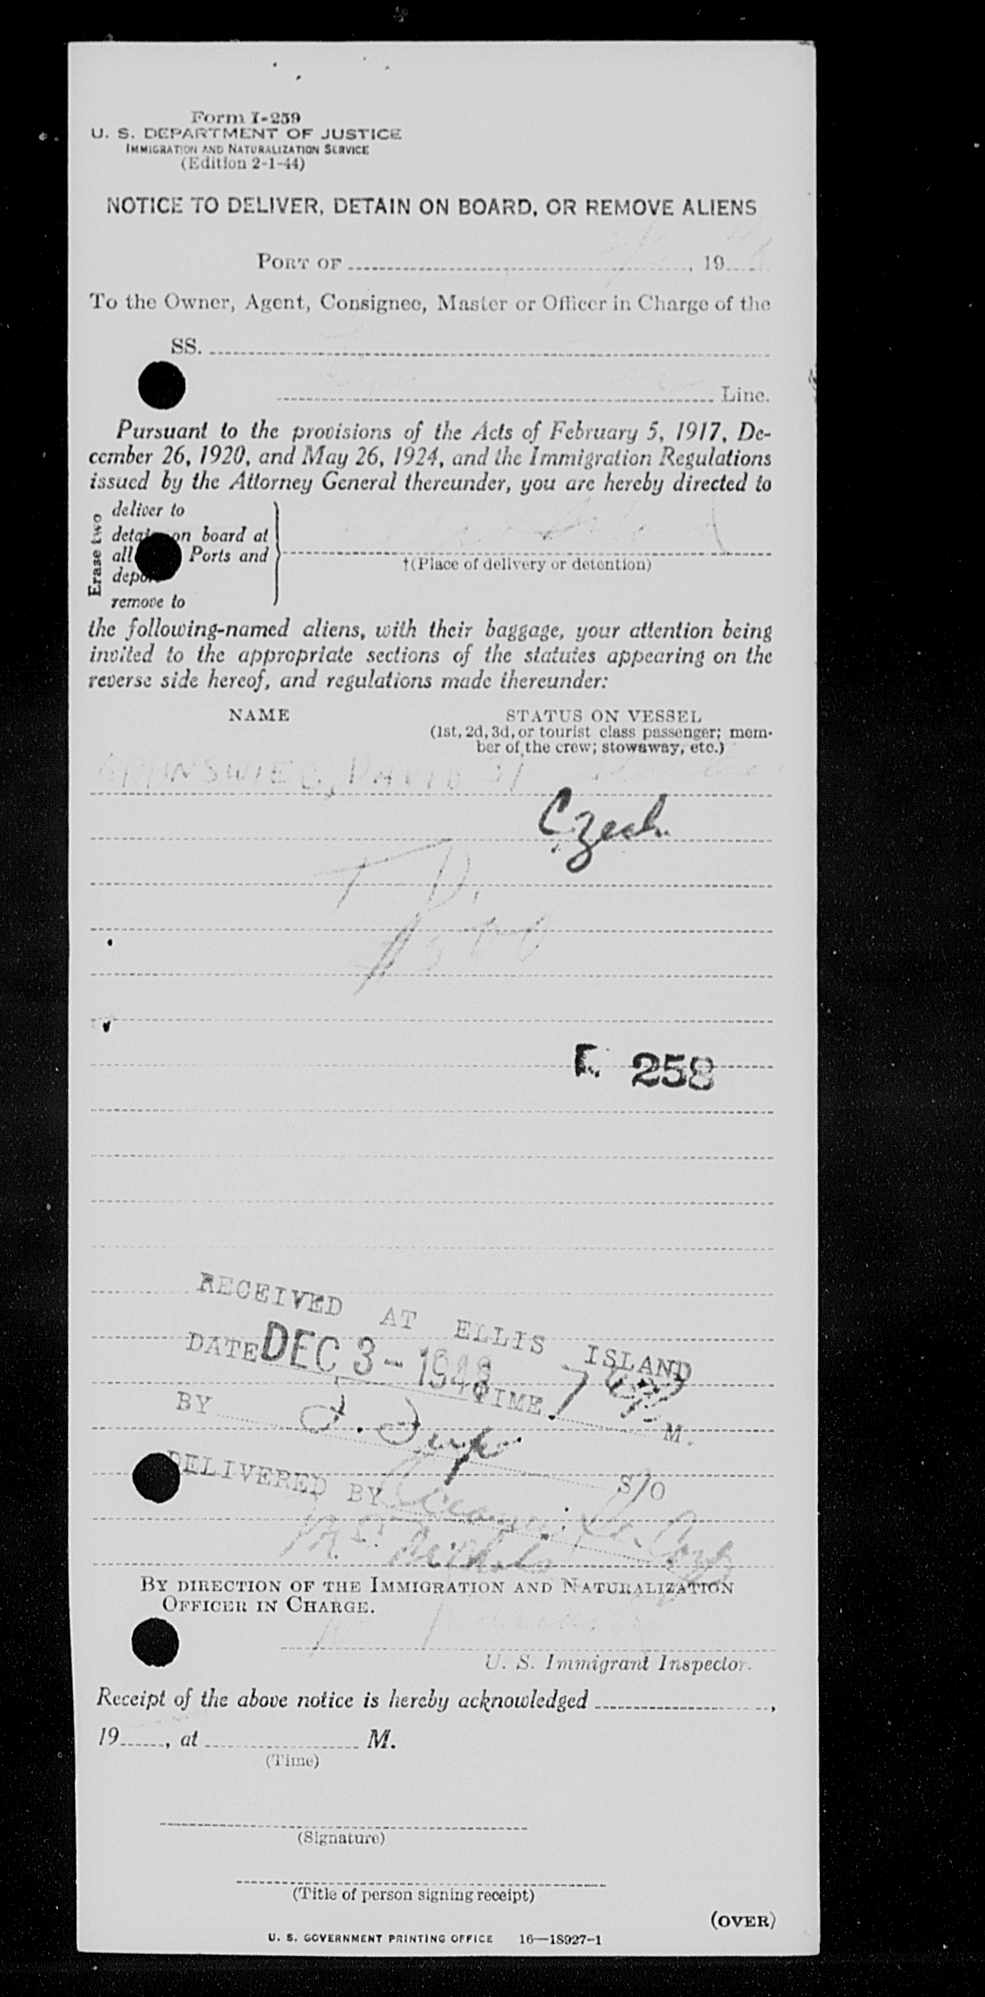 Form I-259
U. S. DEPARTMENT OF JUSTICE
IMMIGRATION AND NATURALIZATION SERVICE
(Edition 2-1-44)
NOTICE TO DELIVER, DETAIN ON BOARD, OR REMOVE ALIENS
PORT OF , 19
To the Owner, Agent, Consignee, Master or Officer in Charge of the
SS.
Line.
Pursuant to the provisions of the Acts of February 5, 1917, De-
cember 26, 1920, and May 26, 1924, and the Immigration Regulations
issued by the Attorney General thereunder, you are hereby directed to
Erase two
deliver to
detain on board at
all Ports and
deport
remove to
†(Place of delivery or detention)
the following-named aliens, with their baggage, your attention being
invited to the appropriate sections of the statutes appearing on the
reverse side hereof, and regulations made thereunder:
NAME STATUS ON VESSEL
(1st, 2d, 3d, or tourist class passenger; mem-
ber of the crew; stowaway, etc.)
DAVID
Czech.
T D.
$500
258
RECEIVED AT ELLIS ISLAND
DATE DEC 3 - 1948 TIME 7 M.
BY
S/O
DELIVERED BY
BY DIRECTION OF THE IMMIGRATION AND NATURALIZATION
OFFICER IN CHARGE.
U. S. Immigrant Inspector.
Receipt of the above notice is hereby acknowledged ,
19 , at M.
(Time)
(Signature)
(Title of person signing receipt)
(OVER)
U. S. GOVERNMENT PRINTING OFFICE 16—18927-1